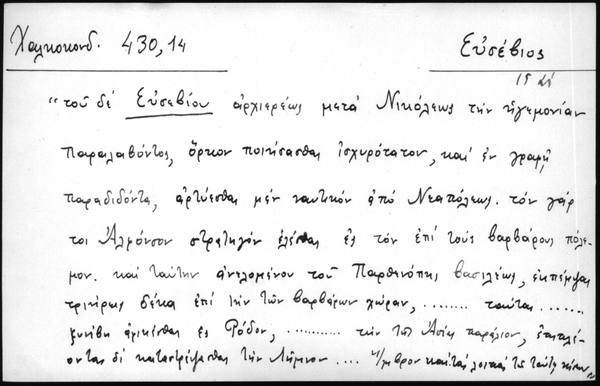 Χαλκοκονδ. 430,14
Εὐσέβιος
15 αἰ
"τοῦ δὲ Εὐσεβίου ἀρχιερέως μετὰ Νικόλεως τὴν ἡγεμονίαν
παραλαβόντος, ὅρκον ποιήσασθαι ἰσχυρότατον, καὶ ἐν γραφῇ
παραδιδόντα, ἀρτύεσθαι μὲν ναυτικὸν ἀπὸ Νεαπόλεως. τὸν γάρ
τοι Ἀλφόνσον στρατηγὸν ἑλέσθαι ἐς τὸν ἐπὶ τοὺς βαρβάρους πόλε-
μον. καὶ ταύτην ἀνελομένου τοῦ Παρθενόπης βασιλέως, ἐκπέμψαι
τριήρεις δέκα ἐπὶ τὴν τῶν βαρβάρων χώραν, ........ ταύτας .......
ξυνέβη ἀφικέσθαι ἐς Ῥόδον, ........... τὴν τῆς Ἀσίας παράλιον, ἐπιπλέ-
οντας δὲ καταστρέψασθαι τὴν Λῆμνον .... Ἴμβρον καὶ τὰς λοιπὰς